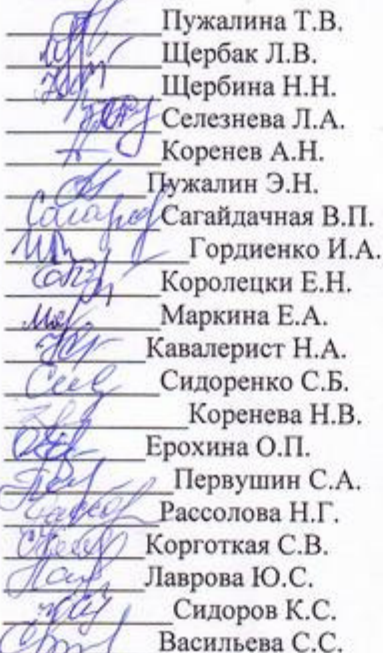 Пужалина Т.В.
Щербак Л.В.
Щербина Н.Н.
Селезнева Л.А.
Коренев А.Н.
Пужалин Э.Н.
Сагайдачная В.П.
Гордиенко И.А.
Королецки Е.Н.
Маркина Е.А.
Кавалерист Н.А.
Сидоренко С.Б.
Коренева Н.В.
Ерохина О.П.
Первушин С.А.
Рассолова Н.Г.
Корготкая С.В.
Лаврова Ю.С.
Сидоров К.С.
Васильева С.С.